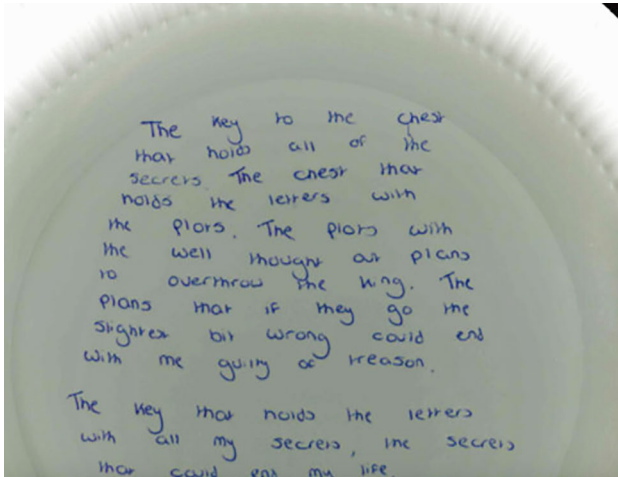 The key to the chest
that holds all of the
secrets. The chest that
holds the letters with
the plots. The plots with
the well thought out plans
to overthrow the king. The
plans that if they go the
slightest bit wrong could end
with me guilty of treason.
The key that holds the letters
with all my secrets, the secrets
that could end my life.